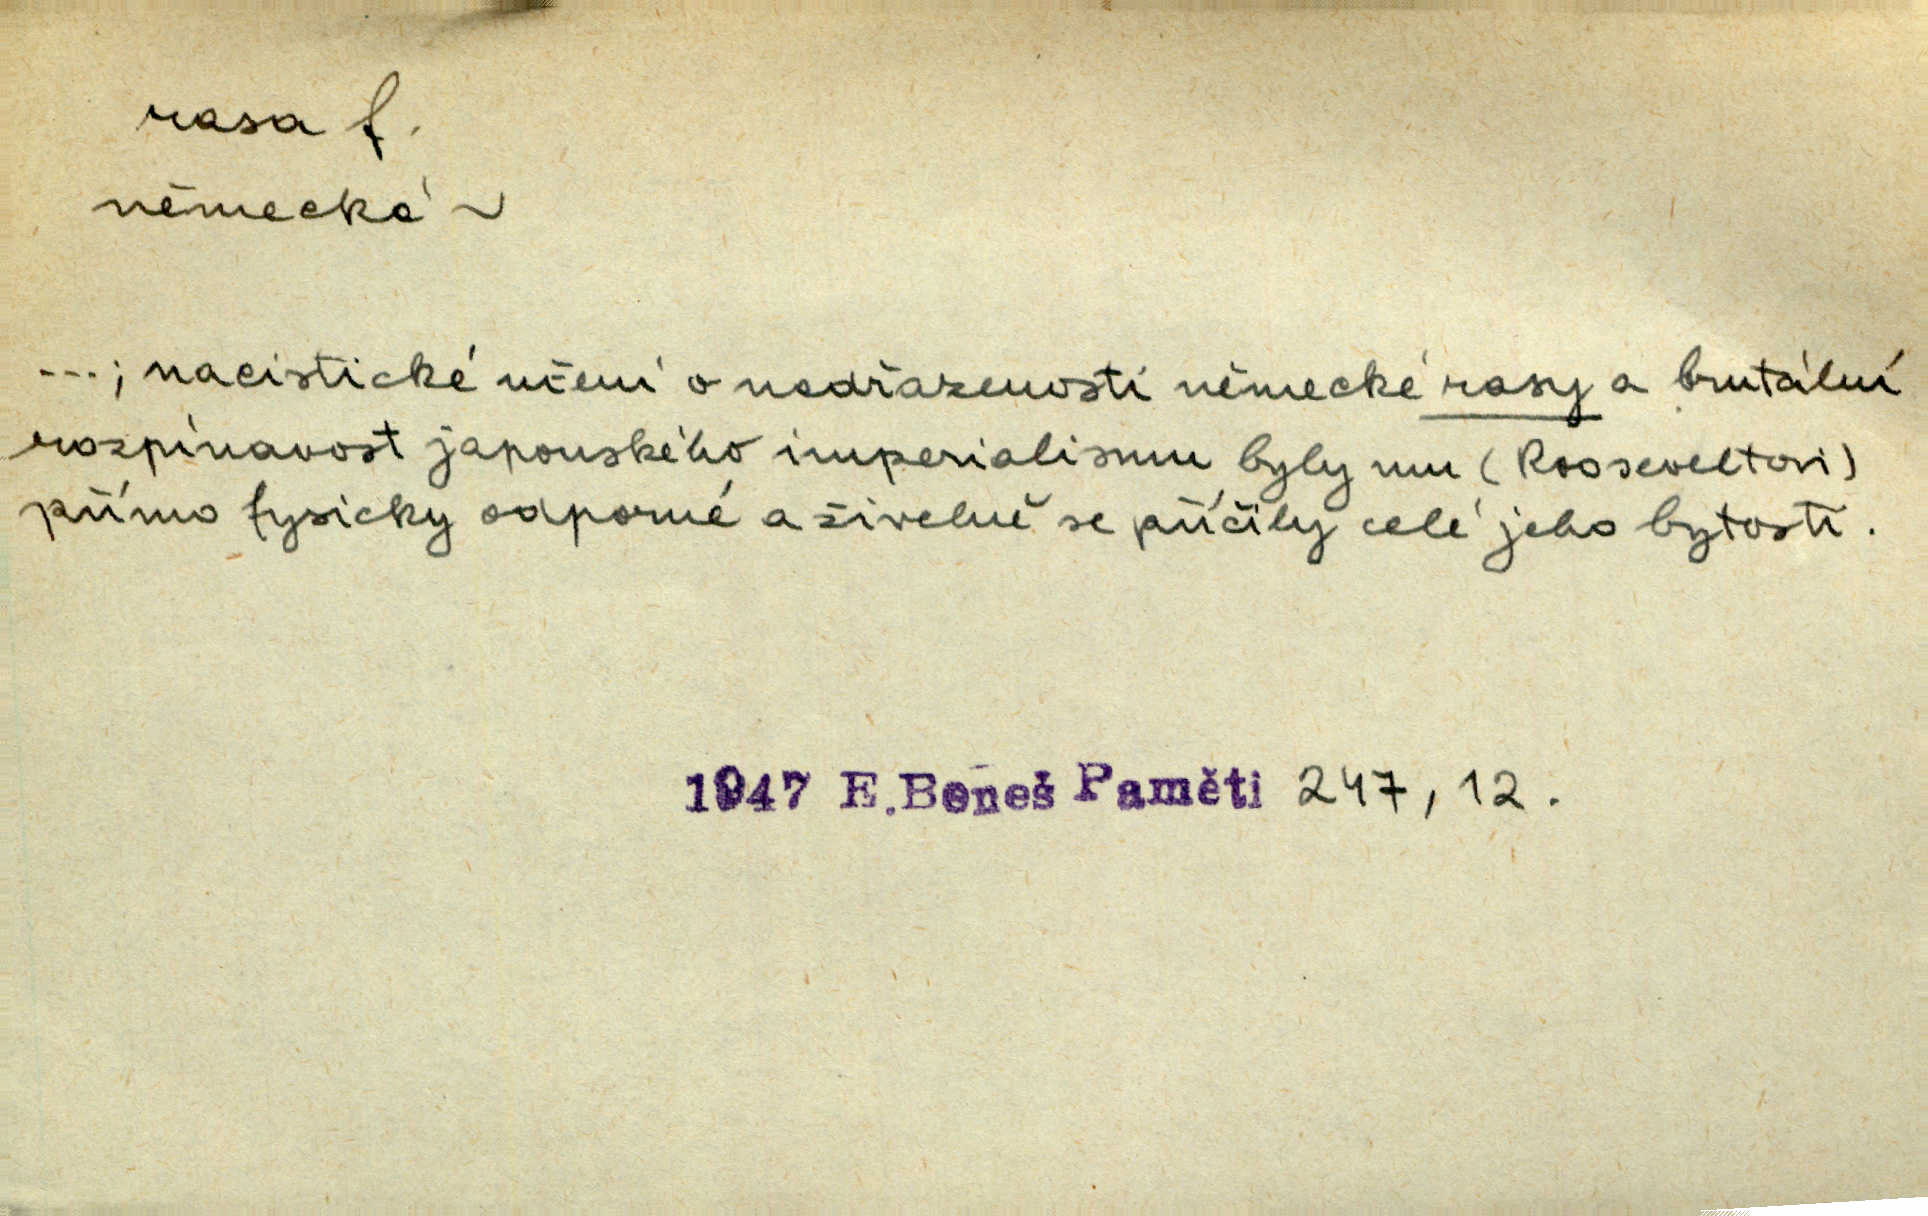 rasa f.
německá ~
---; nacistické učení o nadřazenosti německé rasy a brutální
rozpínavost japonského imperialismu byly mu (Rooseveltovi)
přímo fysicky odporné a živelně se příčily celé jeho bytosti.
1947 E.Beneš Paměti 247, 12.